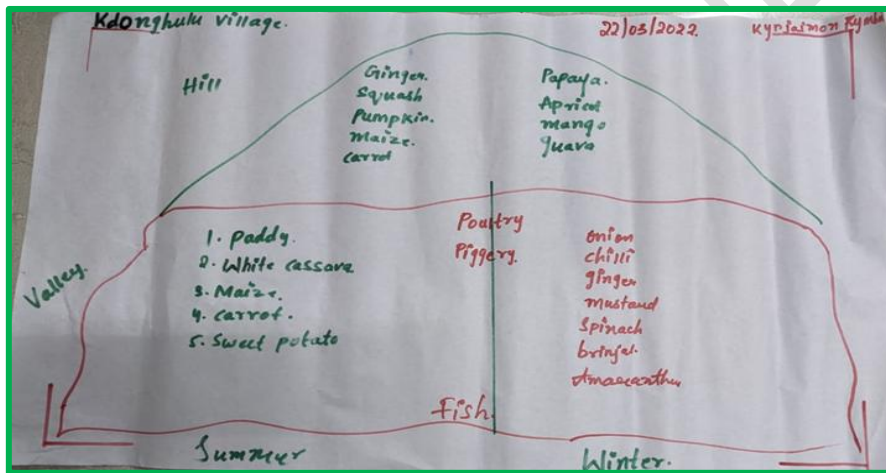 Kdonghulu Village.
22/03/2022.
Hill
Ginger.
Squash
Pumpkin.
Maize.
carrot
Papaya.
Apricot
mango
guava
Valley.
1. Paddy.
2. White cassava
3. Maize.
4. carrot.
5. Sweet potato
Poultry
Piggery.
Fish.
onion
chilli
ginger
mustard
Spinach
brinjal.
Amaranthus
Summer
Winter.